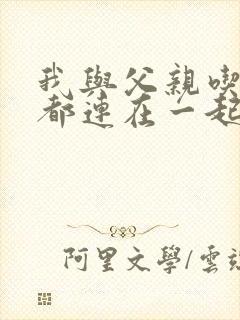 我與父親喫
都連在一起
阿里文學/雲